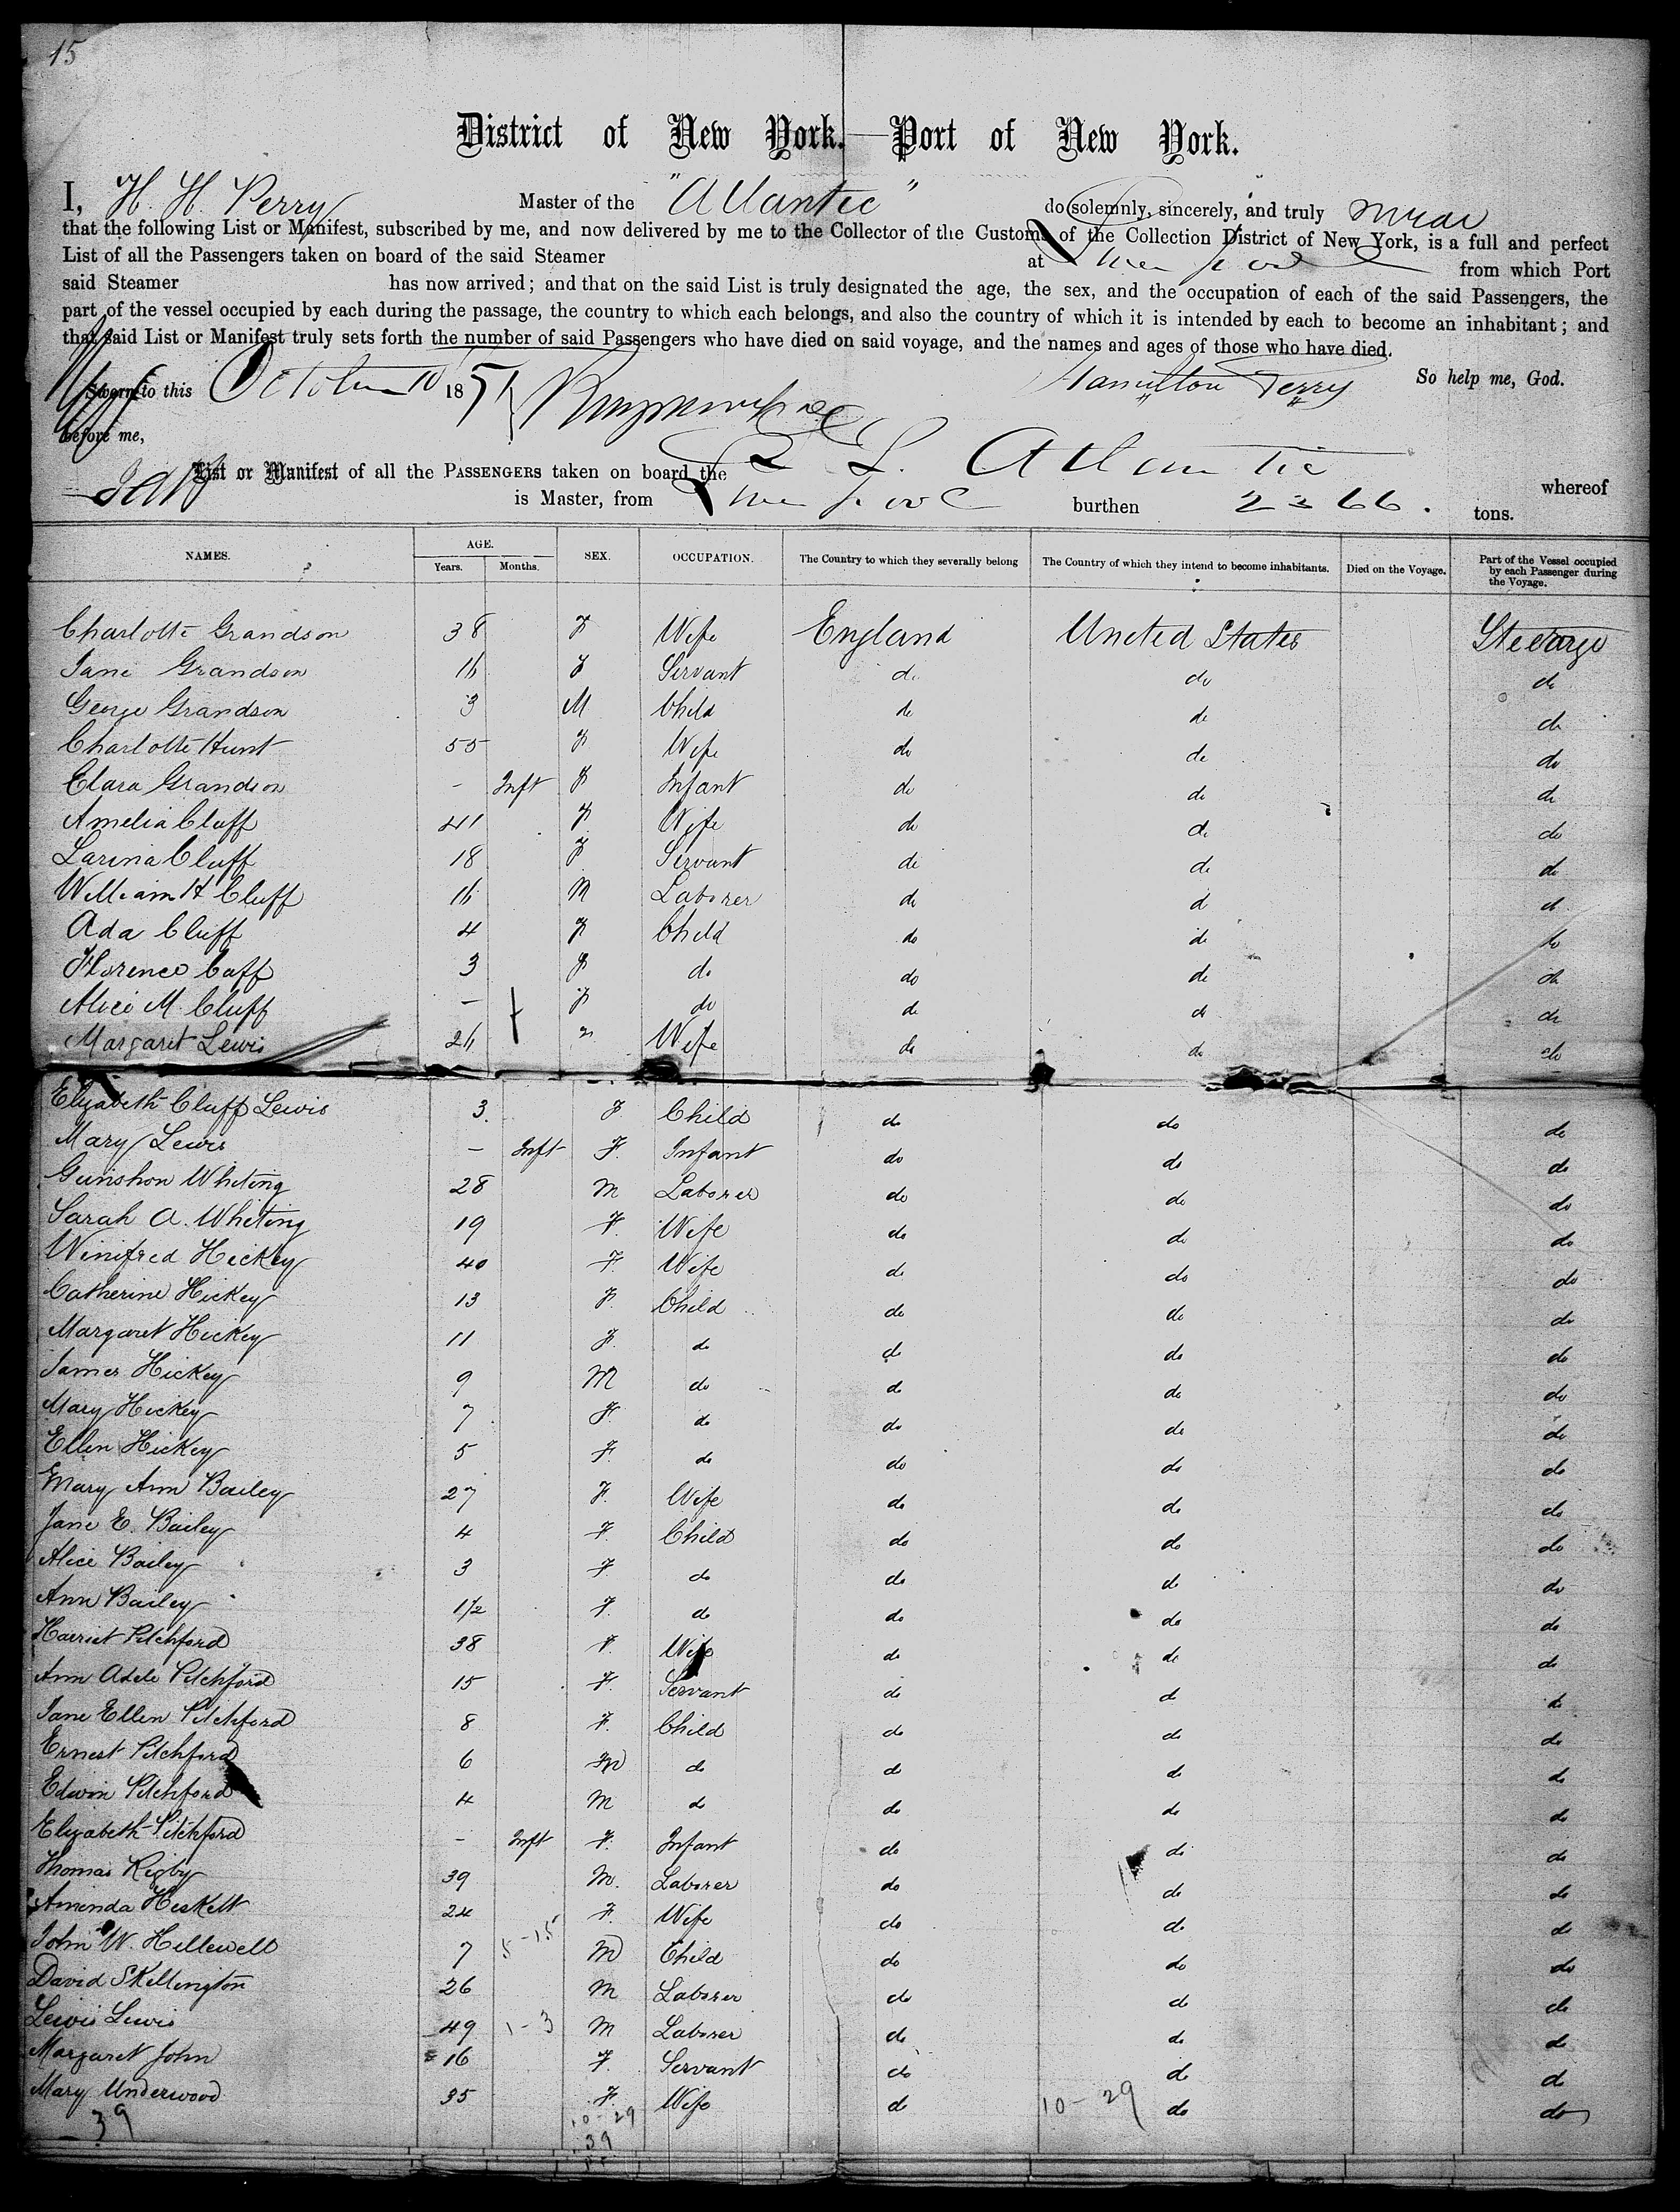 15
District of New York.—Port of New York.
I, H. H. Perry Master of the "Atlantic" do solemnly, sincerely, and truly swear
that the following List or Manifest, subscribed by me, and now delivered by me to the Collector of the Customs of the Collection District of New York, is a full and perfect
List of all the Passengers taken on board of the said Steamer at Liverpool from which Port
said Steamer has now arrived; and that on the said List is truly designated the age, the sex, and the occupation of each of the said Passengers, the
part of the vessel occupied by each during the passage, the country to which each belongs, and also the country of which it is intended by each to become an inhabitant; and
that said List or Manifest truly sets forth the number of said Passengers who have died on said voyage, and the names and ages of those who have died.
So help me, God.
Sworn to this October 10 18 Hamilton Perry
before me,
List or Manifest of all the PASSENGERS taken on board the Atlantic whereof
is Master, from Liverpool burthen 2366. tons.
NAMES. AGE. Years. Months. SEX. OCCUPATION. The Country to which they severally belong The Country of which they intend to become inhabitants. Died on the Voyage. Part of the Vessel occupied by each Passenger during the Voyage.
Charlotte Grandson 38 F Wife England United States Steerage
Jane Grandson 16 F Servant do do do
George Grandson 3 M Child do do do
Charlotte Hunt 55 F Wife do do do
Clara Grandson - Inft F Infant do do do
Amelia Cluff 41 F Wife do do do
Larina Cluff 18 F Servant do do do
William H Cluff 16 M Laborer do do do
Ada Cluff 4 F Child do do do
Florence Caff 3 F do do do do
Alice M. Cluff - F do do do do
Margaret Lewis 26 Wife do do do
Elizabeth Cluff Lewis 3 F Child do do do
Mary Lewis - Inft F. Infant do do do
Gunshon Whiting 28 M Laborer do do do
Sarah A. Whiting 19 F. Wife do do do
Winifred Hickey 40 F. Wife do do do
Catherine Hickey 13 F. Child do do do
Margaret Hickey 11 F. do do do do
James Hickey 9 M do do do do
Mary Hickey 7 F. do do do do
Ellen Hickey 5 F. do do do do
Mary Ann Bailey 27 F. Wife do do do
Jane E. Bailey 4 F. Child do do do
Alice Bailey 3 F do do do do
Ann Bailey 1/2 F. do do do do
Harriet Pitchford 38 F. Wife do do do
Ann Adele Pitchford 15 F. Servant do do do
Jane Ellen Pitchford 8 F. Child do do do
Ernest Pitchford 6 M do do do do
Edwin Pitchford 4 M do do do do
Elizabeth Pitchford - Inft F. Infant do do do
Thomas Rigby 39 M. Laborer do do do
Amenda Heskett 24 F. Wife do do do
John W. Hellewell 7 5-15 M Child do do do
David Skellington 26 M Laborer do do do
Lewis Lewis 49 1-3 M Laborer do do do
Margaret John 16 F. Servant do do do
Mary Underwood 35 F. Wife do 10-29 do do
39 10-29
39